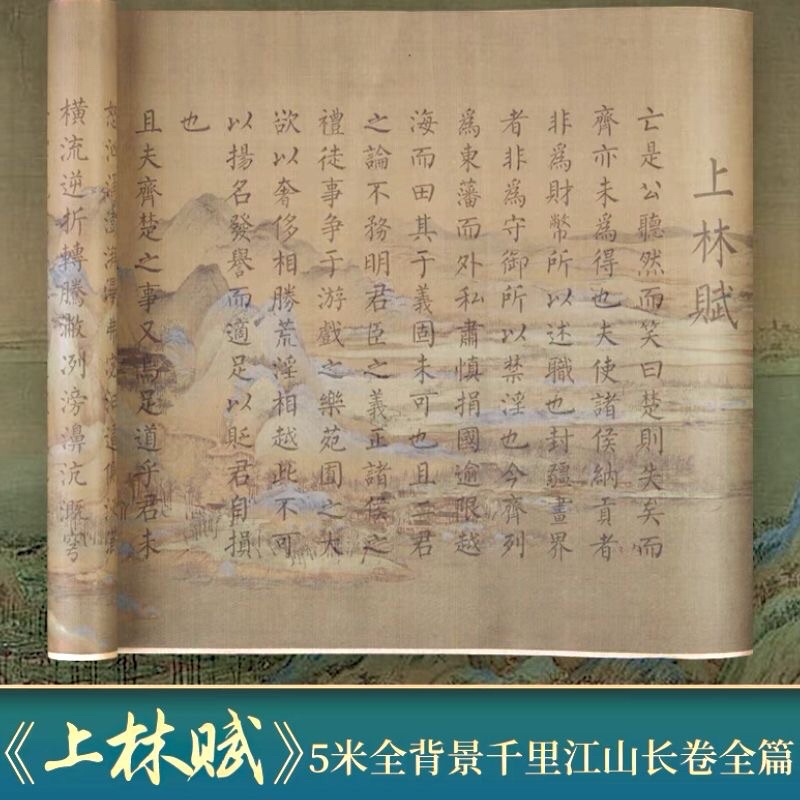 上林賦
亡是公聽然而笑曰楚則失矣而
齊亦未爲得也夫使諸侯納貢者
非爲財幣所以述職也封疆畫界
者非爲守御所以禁淫也今齊列
爲東藩而外私肅慎捐國逾限越
海而田其于義固未可也且二君
之論不務明君臣之義正諸侯之
禮徒事争于游戲之樂苑囿之大
欲以奢侈相勝荒淫相越此不可
以揚名發譽而適足以貶君自損
也
且夫齊楚之事又烏足道乎君未
橫流逆折轉騰潎洌滂濞沆溉穹
《上林赋》5米全背景千里江山长卷全篇